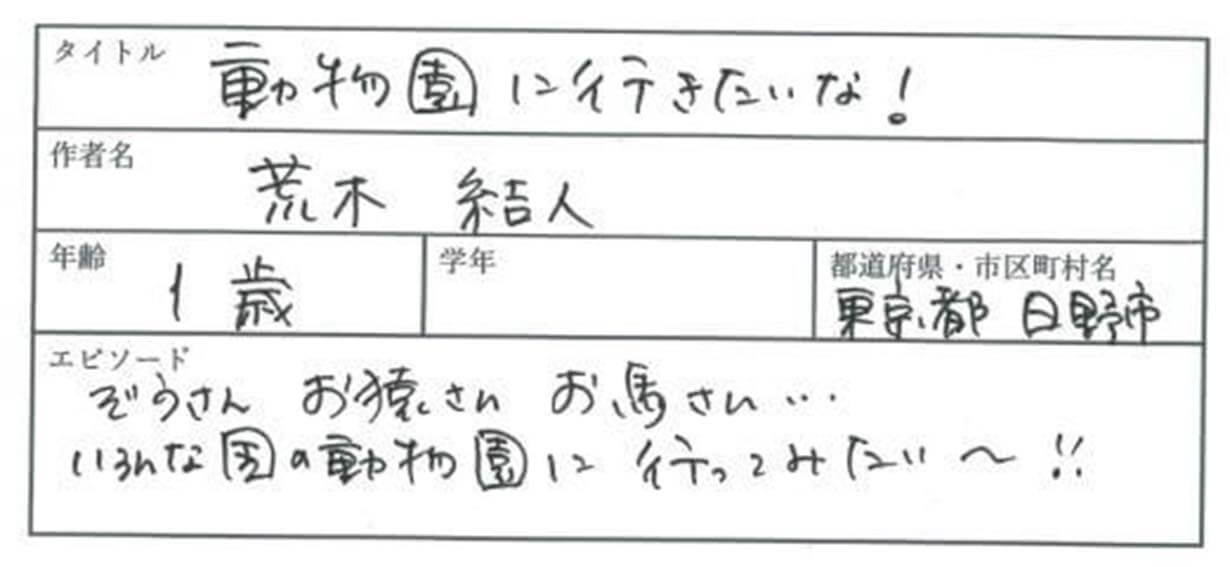 タイトル
動物園に行きたいな!
作者名
荒木 結人
年齢
1歳
学年
都道府県・市区町村名
東京都 日野市
エピソード
ぞうさん お猿さん お馬さん…
いろんな国の動物園に 行ってみたい〜!!